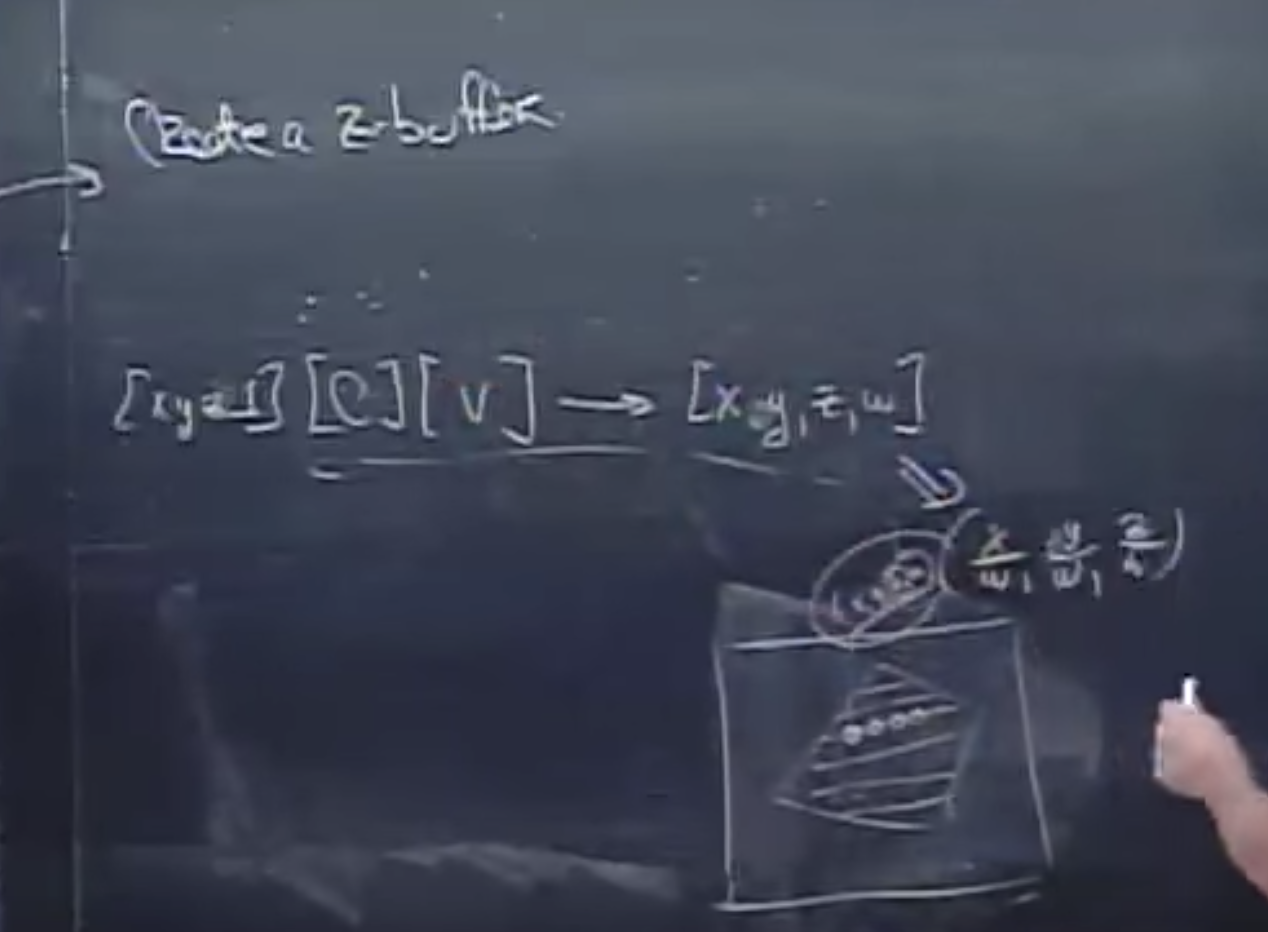 Create a Z-buffer
[x y z 1] [C] [V] → [x, y, z, w]
(x/w, y/w, z/w)